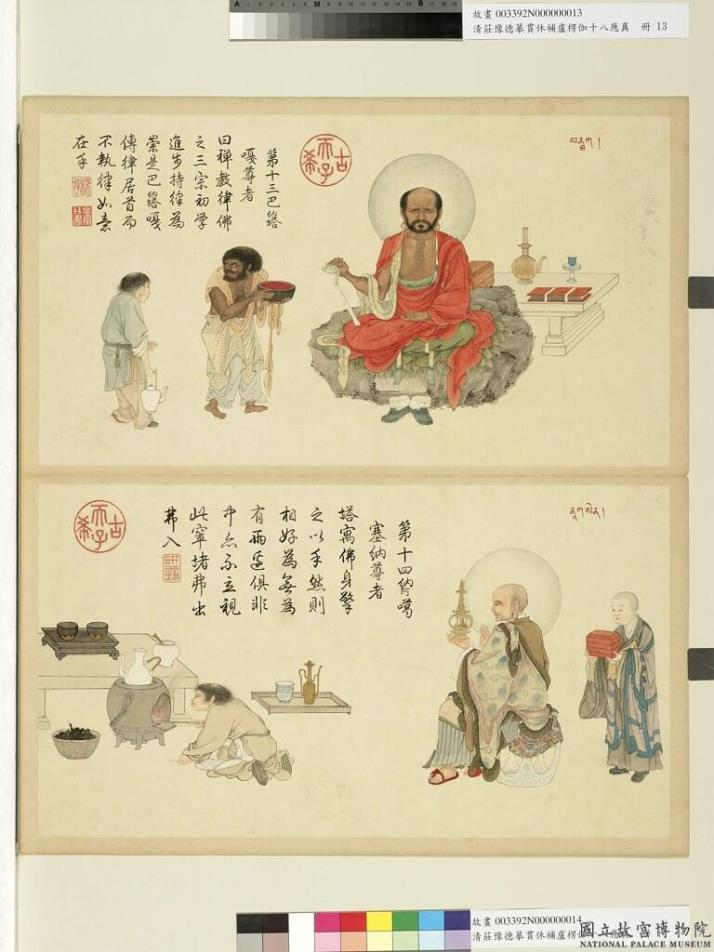 故畫 003392N000000013
清莊豫德摹貫休補盧楞伽十八應真 冊 13
古希天子
第十三巴
嘎尊者
曰禪教律佛
之三宗初學
進步持律為
崇是巴 嘎
傳律居首而
不執律如意
在手
第十四 噶
塞納尊者
塔寓佛身擎
之以手然則
相好為無為
有兩邊俱非
中亦不立視
此窣堵弗出
弗入
古希天子
故畫 003392N000000014
清莊豫德摹貫休補盧楞伽十八應真
國立故宮博物院
NATIONAL PALACE MUSEUM